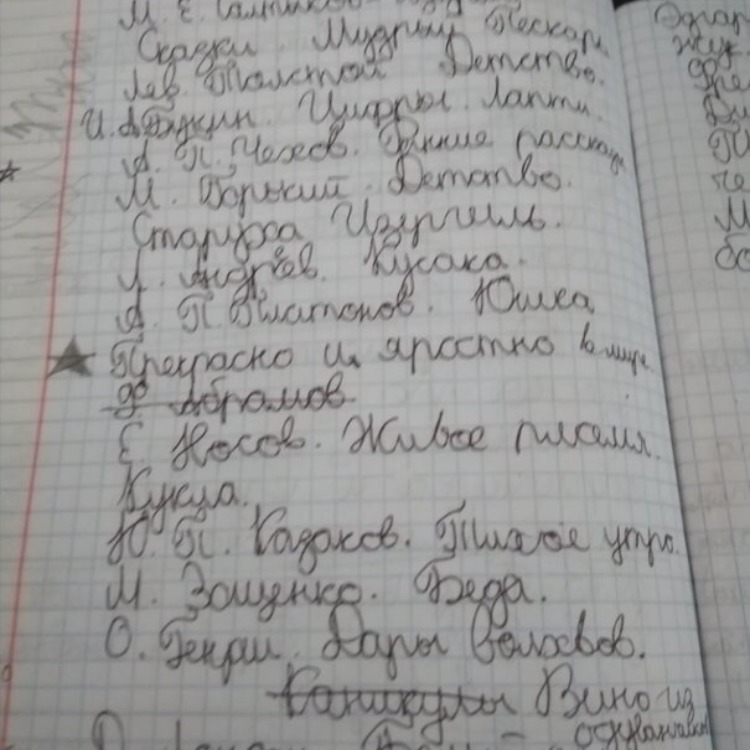 М. Е. Салтыков-
Сказки. Мудрый Пескарь
Лев Толстой Детство.
И. А. Бунин. Цифры. Лапти.
А. П. Чехов. Ранние рассказы
М. Горький. Детство.
Старуха Изергиль.
Л. Андреев. Кусака.
А. П. Платонов. Юшка
Прекрасно и яростно в мире
Абрамов
Е Носов. Живое пламя.
Кукла.
Ю. П. Казаков. Тихое утро.
М. Зощенко. Беда.
О. Генри. Дары Волхвов.
Каникулы Вино из
одуванчиков